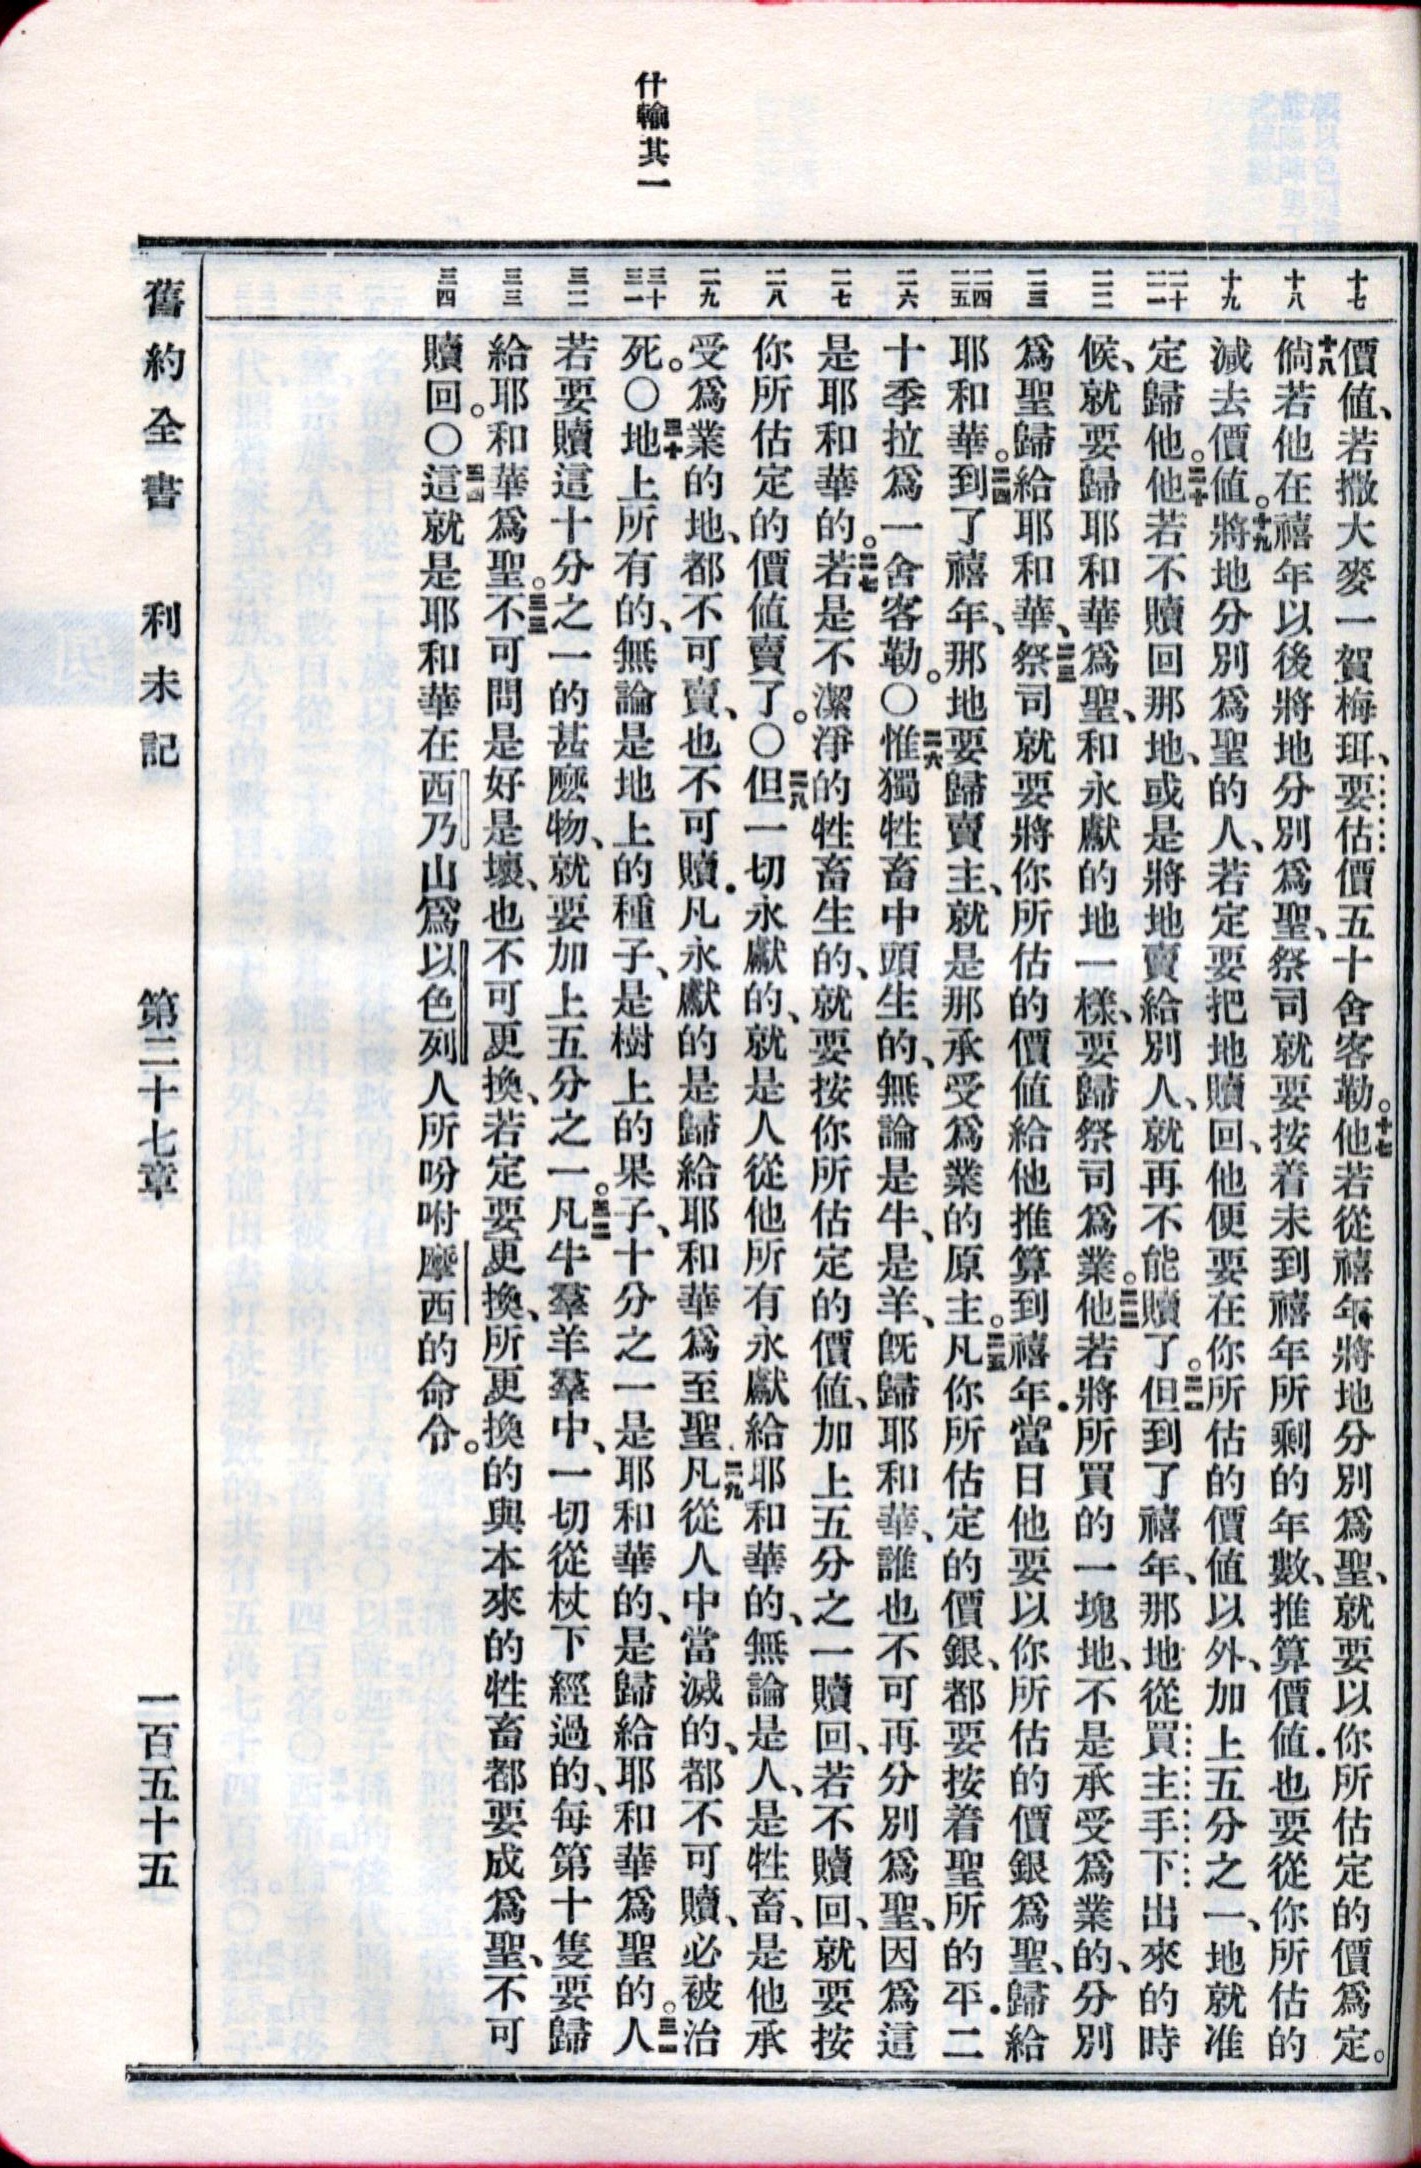 什輸其一
十七
十八
十九
二十 二一
二二
二三
二四 二五
二六
二七
二八
二九
三十 三一
三二
三三
三四
價值、若撒大麥一賀梅珥、要估價五十舍客勒。十七他若從禧年將地分別爲聖、就要以你所估定的價爲定。
十八倘若他在禧年以後將地分別爲聖、祭司就要按着未到禧年所剩的年數、推算價值．也要從你所估的
減去價值。十九將地分別爲聖的人、若定要把地贖回、他便要在你所估的價值以外、加上五分之一、地就准
定歸他。二十他若不贖回那地、或是將地賣給別人、就再不能贖了。二一但到了禧年、那地從買主手下出來的時
候、就要歸耶和華爲聖、和永獻的地一樣、要歸祭司爲業。二二他若將所買的一塊地、不是承受爲業的、分別
爲聖歸給耶和華、二三祭司就要將你所估的價值給他推算到禧年．當日他要以你所估的價銀爲聖、歸給
耶和華。二四到了禧年、那地要歸賣主、就是那承受爲業的原主。二五凡你所估定的價銀、都要按着聖所的平．二
十季拉爲一舍客勒。○二六惟獨牲畜中頭生的、無論是牛、是羊、旣歸耶和華、誰也不可再分別爲聖、因爲這
是耶和華的。二七若是不潔淨的牲畜生的、就要按你所估定的價值、加上五分之一贖回、若不贖回、就要按
你所估定的價值賣了。○二八但一切永獻的、就是人從他所有永獻給耶和華的、無論是人、是牲畜、是他承
受爲業的地、都不可賣、也不可贖．凡永獻的是歸給耶和華爲至聖．二九凡從人中當滅的、都不可贖、必被治
死。○三十地上所有的、無論是地上的種子、是樹上的果子、十分之一是耶和華的、是歸給耶和華爲聖的。三一人
若要贖這十分之一的甚麼物、就要加上五分之一。三二凡牛羣羊羣中、一切從杖下經過的、每第十隻要歸
給耶和華爲聖。三三不可問是好是壞、也不可更換、若定要更換、所更換的與本來的牲畜都要成爲聖、不可
贖回。○三四這就是耶和華在西乃山爲以色列人所吩咐摩西的命令。
舊約全書 利未記 第二十七章 一百五十五